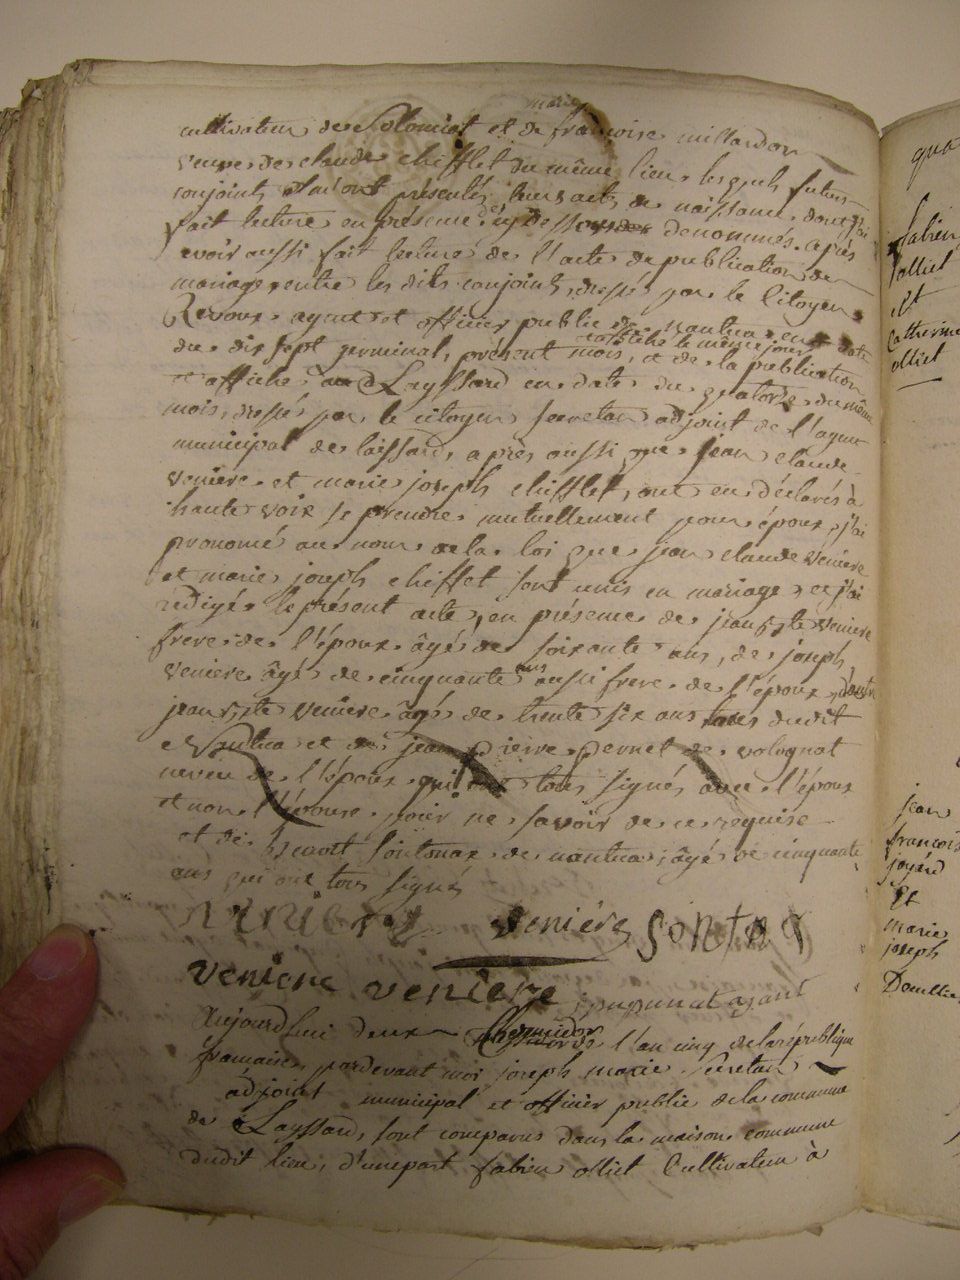 marie
cultivateur de Colomiat et de françoise millardon
veuve de claude chifflet du même lieu. lesquels futurs
conjoints m'ont présentés leurs actes de naissance dont j'ai
fait lecture en présence des denommés. après
avoir aussi fait lecture de l'acte de publication de
mariage entre les dits conjoints, dressé par le Citoyen
agent et officier public de nantua en date
affiché le même jour
du dix sept germinal, présent mois, et de la publication
et affiche à Layssard en date du quatorze du même
mois, dressé par le citoyen Secretan adjoint de l'agent
municipal de laissard, après aussi que jean claude
veniere et marie joseph chifflet, ont eu déclarés à
haute voix se prendre mutuellement pour époux, j'ai
prononcé au nom de la loi que jean claude veniere
et marie joseph chiffet sont unis en mariage, et j'ai
redigé le présent acte, en présence de jean Bte veniere
frere de l'époux âgé de soixante ans, de joseph
veniere âgé de cinquante ans aussi frere de l'époux, d'autre
jean Bte veniere âgé de trente six ans tous dudit
Nantua et de jean pierre pernet de volognat
neveu de l'époux qui ont tous signés avec l'époux
et non l'épouse pour ne savoir de ce requise
et de benoit Sontonax de nantua, âgé de cinquante
ans qui ont tous signés
veniére sontonax
veniere veniere
Aujourd'hui deux thermidor l'an cinq de la république
francaise, pardevant moi joseph marie Secretan
adjoint municipal et officier public de la commune
de Layssard, sont comparus dans la maison commune
dudit lieu, d'une part fabien olliet Cultivateur à
fabien
olliet
et
Catherine
olliet
jean
francois
joyard
Et
marie
joseph